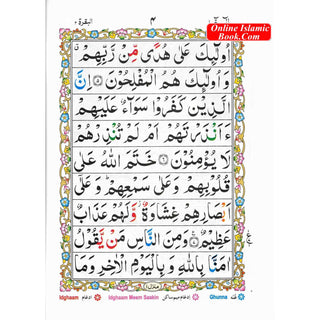 Online Islamic
Book.Com
البقرة ٢
٤
اُولٰٓئِكَ عَلٰى هُدًى مِّنْ رَّبِّهِمْ
وَاُولٰٓئِكَ هُمُ الْمُفْلِحُوْنَ ۝٥ اِنَّ
الَّذِيْنَ كَفَرُوْا سَوَآءٌ عَلَيْهِمْ
ءَاَنْذَرْتَهُمْ اَمْ لَمْ تُنْذِرْهُمْ
لَا يُؤْمِنُوْنَ ۝٦ خَتَمَ اللّٰهُ عَلٰى
قُلُوْبِهِمْ وَعَلٰى سَمْعِهِمْ ؕ وَعَلٰٓى
اَبْصَارِهِمْ غِشَاوَةٌ وَّلَهُمْ عَذَابٌ
عَظِيْمٌ ۝٧ وَمِنَ النَّاسِ مَنْ يَّقُوْلُ
اٰمَنَّا بِاللّٰهِ وَبِالْيَوْمِ الْاٰخِرِ وَمَا
Idghaam ادغام
Idghaam Meem Saakin ادغام میم ساکن
Ghunna غنہ